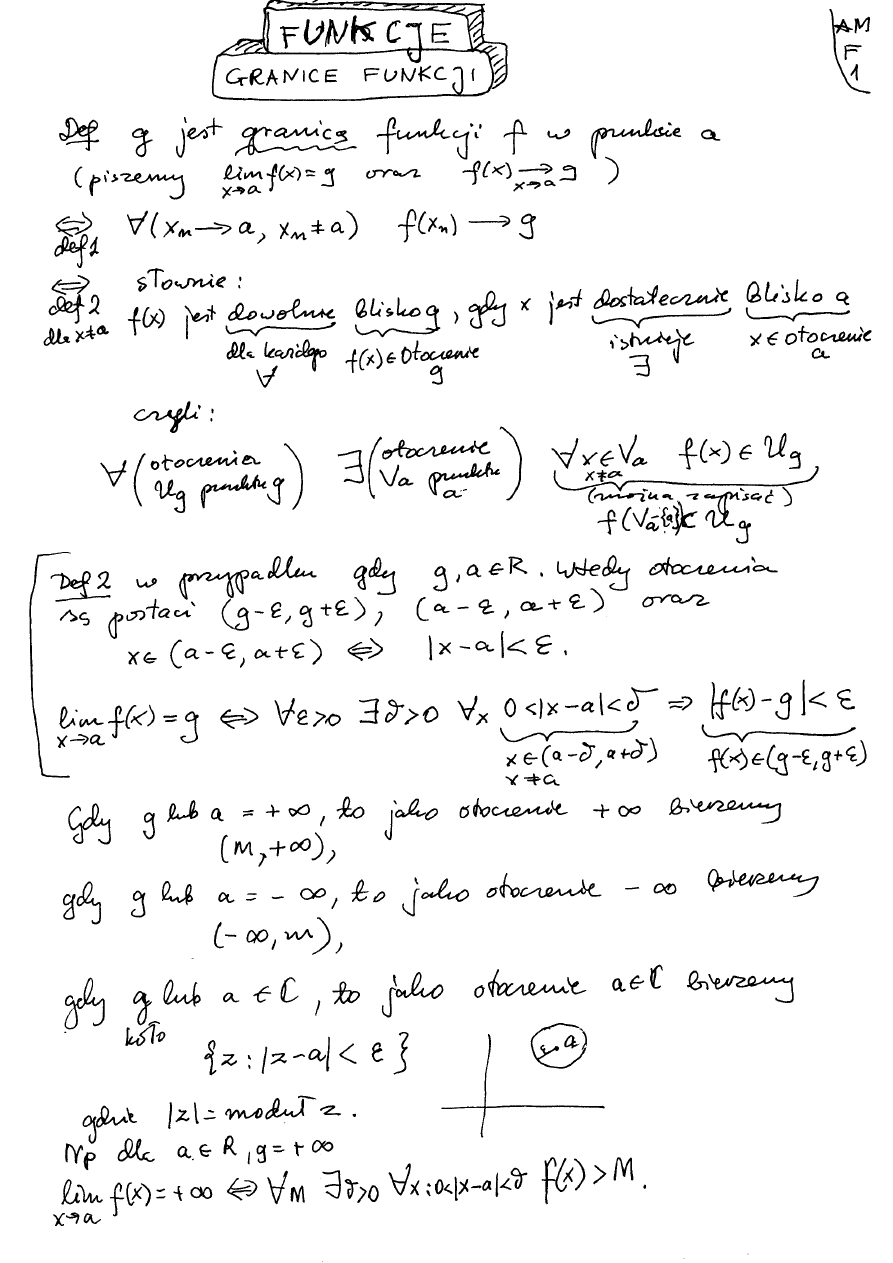 FUNKCJE
GRANICE FUNKCJI
AM
F
1
Def g jest granicą funkcji f w punkcie a
(piszemy lim f(x) = g oraz f(x) → g )
x→a x→a
⇔ ∀(xₙ → a, xₙ ≠ a) f(xₙ) → g
def 1
⇔ słownie:
def 2 f(x) jest dowolnie blisko g, gdy x jest dostatecznie blisko a
dla x≠a
dla każdego f(x) ∈ Otoczenie istnieje x ∈ otoczenie
∀ g ∃ a
czyli:
∀ (otoczenia ∃ (otoczenie ∀x∈Va f(x) ∈ Ug
Ug punktu g) Va punktu x≠a
a) (można zapisać)
f(Va-{a}) ⊂ Ug
Def 2 w przypadku gdy g, a ∈ R. Wtedy otoczenia
są postaci (g-ε, g+ε), (a-ε, a+ε) oraz
x ∈ (a-ε, a+ε) ⇔ |x-a| < ε.
lim f(x) = g ⇔ ∀ε>0 ∃δ>0 ∀x 0<|x-a|<δ ⇒ |f(x)-g| < ε
x→a
x∈(a-δ, a+δ) f(x)∈(g-ε, g+ε)
x≠a
Gdy g lub a = +∞, to jako otoczenie +∞ bierzemy
(M, +∞),
gdy g lub a = -∞, to jako otoczenie -∞ bierzemy
(-∞, m),
gdy g lub a ∈ ℂ, to jako otoczenie a∈ℂ bierzemy
koło
{z : |z-a| < ε}
ε a
gdzie |z| = moduł z.
Np dla a ∈ R, g = +∞
lim f(x) = +∞ ⇔ ∀M ∃δ>0 ∀x: 0<|x-a|<δ f(x) > M.
x→a